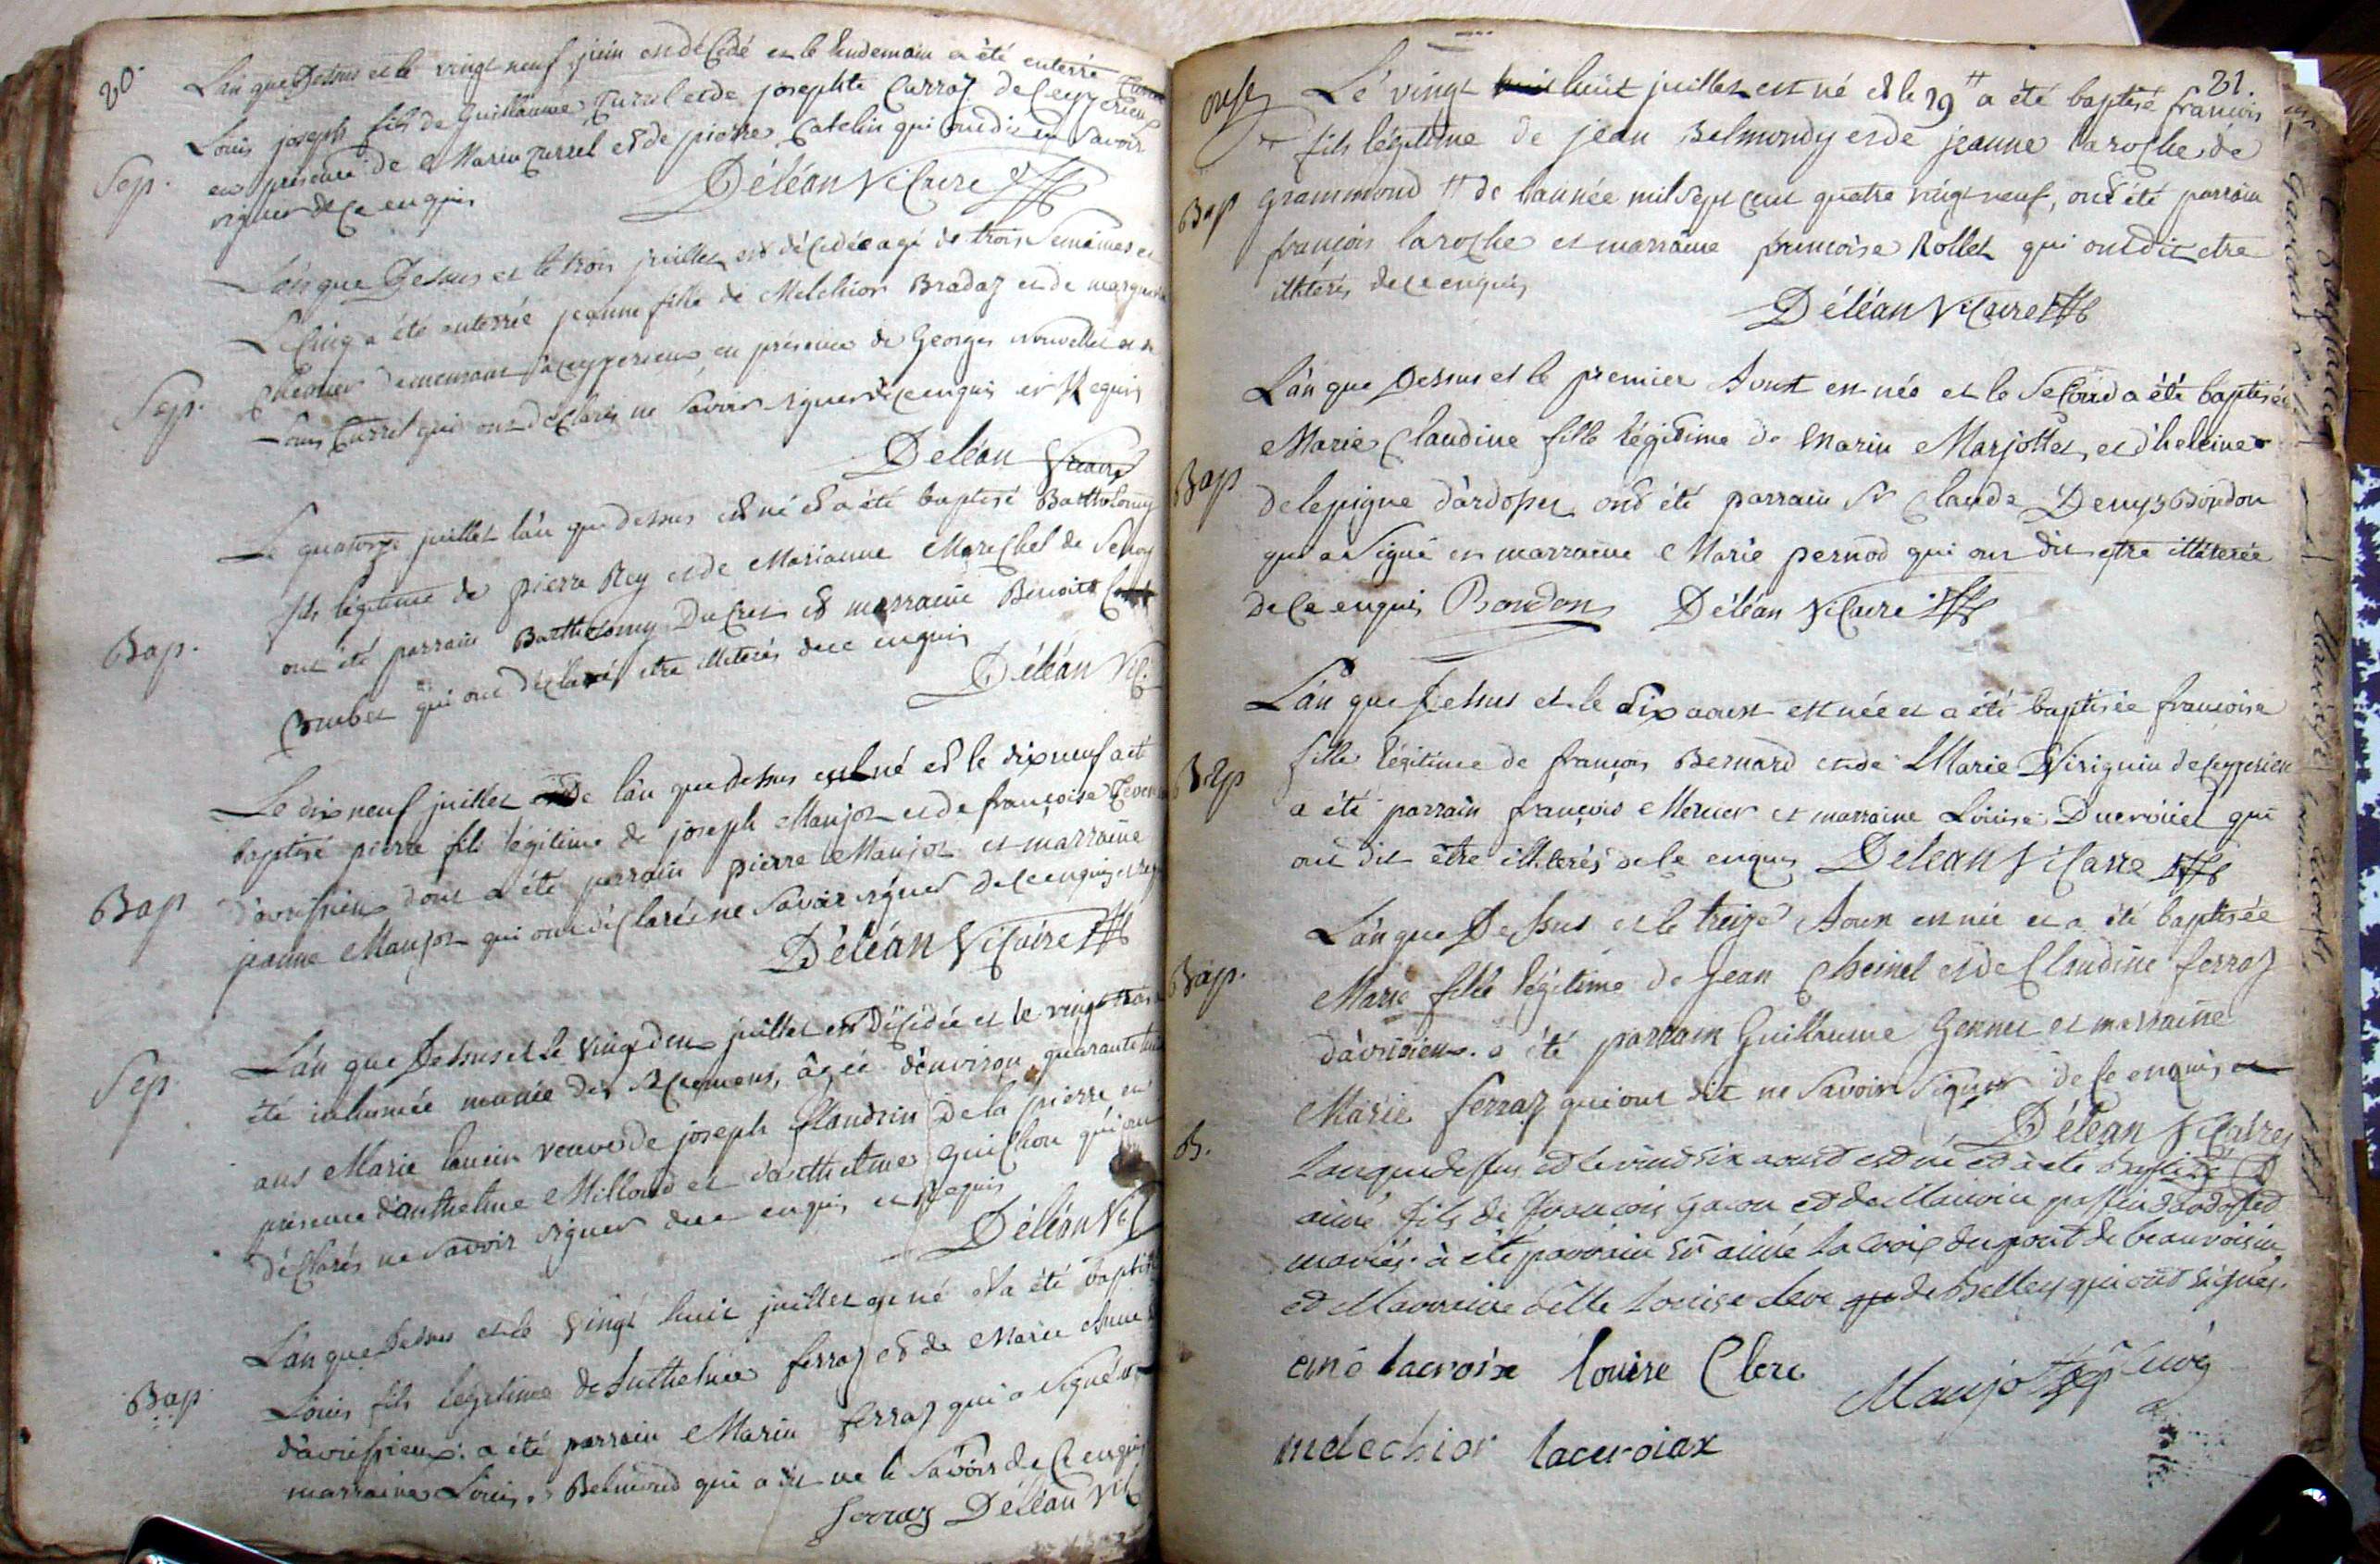 20.
L'an que Dessus et le vingt neuf juin est décédé et le lendemain a été enterré
Louis joseph fils de Guillaume Currel et de josephte Carraz de Ceyzerieux
Sep. en présence de Marin Currel et de pierre Catelin qui ont dit ne savoir
signer de ce enquis
Déléan Vicaire
L'an que Dessus et le trois juillet est décédée agé de trois semaines et
Le cinq a été enterrée jeanne fille de Melchior Bradaz et de marguerite
demeurant à Ceyzerieux, en présence de Georges Nouvellet et de
Sep. Louis Currel qui ont déclarés ne savoir signer de ce enquis et Requis
Déléan Vicaire
Le quatorze juillet l'an que dessus est né et a été baptisé Barthelemy
fils légitime de pierre Rey et de Marianne Marechel de
Bap. ont été parrain Barthelemy Ducret et marraine Benoite
qui ont déclarés etre illiterés de ce enquis
Déléan Vic.
Le dix neuf juillet de l'an que dessus est né et le dix neuf a été
baptisé pierre fils légitime de joseph Maujot et de françoise
Bap d'avrissieux dont a été parrain pierre Maujot et marraine
jeanne Maujot qui ont déclarée ne savoir signer de ce enquis
Déléan Vicaire
L'an que Dessus et le vingt deux juillet est décédée et le vingt trois
Sep été inhumée munie des Sacremens, âgée d'environ quarante
ans Marie veuve de joseph flandrin De la pierre en
présence d'anthelme Milloud et d'anthelme Guichon qui ont
déclarés ne savoir signer de ce enquis et Requis
Déléan Vic
L'an que Dessus et le vingt huit juillet est né et a été baptisé
Bap Louis fils légitime de Anthelme ferraz et de Marie Anne
d'avrissieux: a été parrain Marin ferraz qui a signé et
marraine Louise Belmond qui a dit ne le savoir de ce enquis
ferraz Déléan Vic
21.
Le vingt huit juillet est né et le 29 a été baptisé françois
fils légitime de jean Belmondy et de jeanne laroche de
Bap grammond de l'année mil sept cent quatre vingt neuf, ont été parrain
françois laroche et marraine françoise Rollet qui ont dit etre
illiterés de ce enquis
Déléan Vicaire
L'an que Dessus et le premier Aoust est née et le second a été baptisée
Marie Claudine fille légitime de Marin Marjollet, et d'heleine
Bap delepigne d'ardosset ont été parrain Sr Claude Denys Bondon
qui a signé et marraine Marie pernod qui ont dit etre illiterée
de ce enquis Bondon Déléan Vicaire
L'an que Dessus et le dix aoust est née et a été baptisée françoise
Bap fille légitime de françois Bernard et de Marie Viriguin de Ceyzerieu
a été parrain françois Mercier et marraine Louise qui
ont dit être illiterés de ce enquis Délean Vicaire
L'an que Dessus et le treize Aoust est née et a été baptisée
Bap. Marie fille légitime de jean Cheinel et de Claudine ferraz
d'avrissieux. a été parrain Guillaume Gennet et marraine
Marie ferraz qui ont dit ne savoir signer de ce enquis et
Déléan Vicaire
B. L'an que dessus et le vind six aoust est né et à ete Baptizé
aimé fils de François Gacon et de d'ardosset
mariés. à ete parrain Sr aimé Lacroix du pont de beauvoisin
et Marreine delle Louise clerc de Belley qui ont signés.
emé lacroix louise Clerc
Maujot
melechior lacuroiax